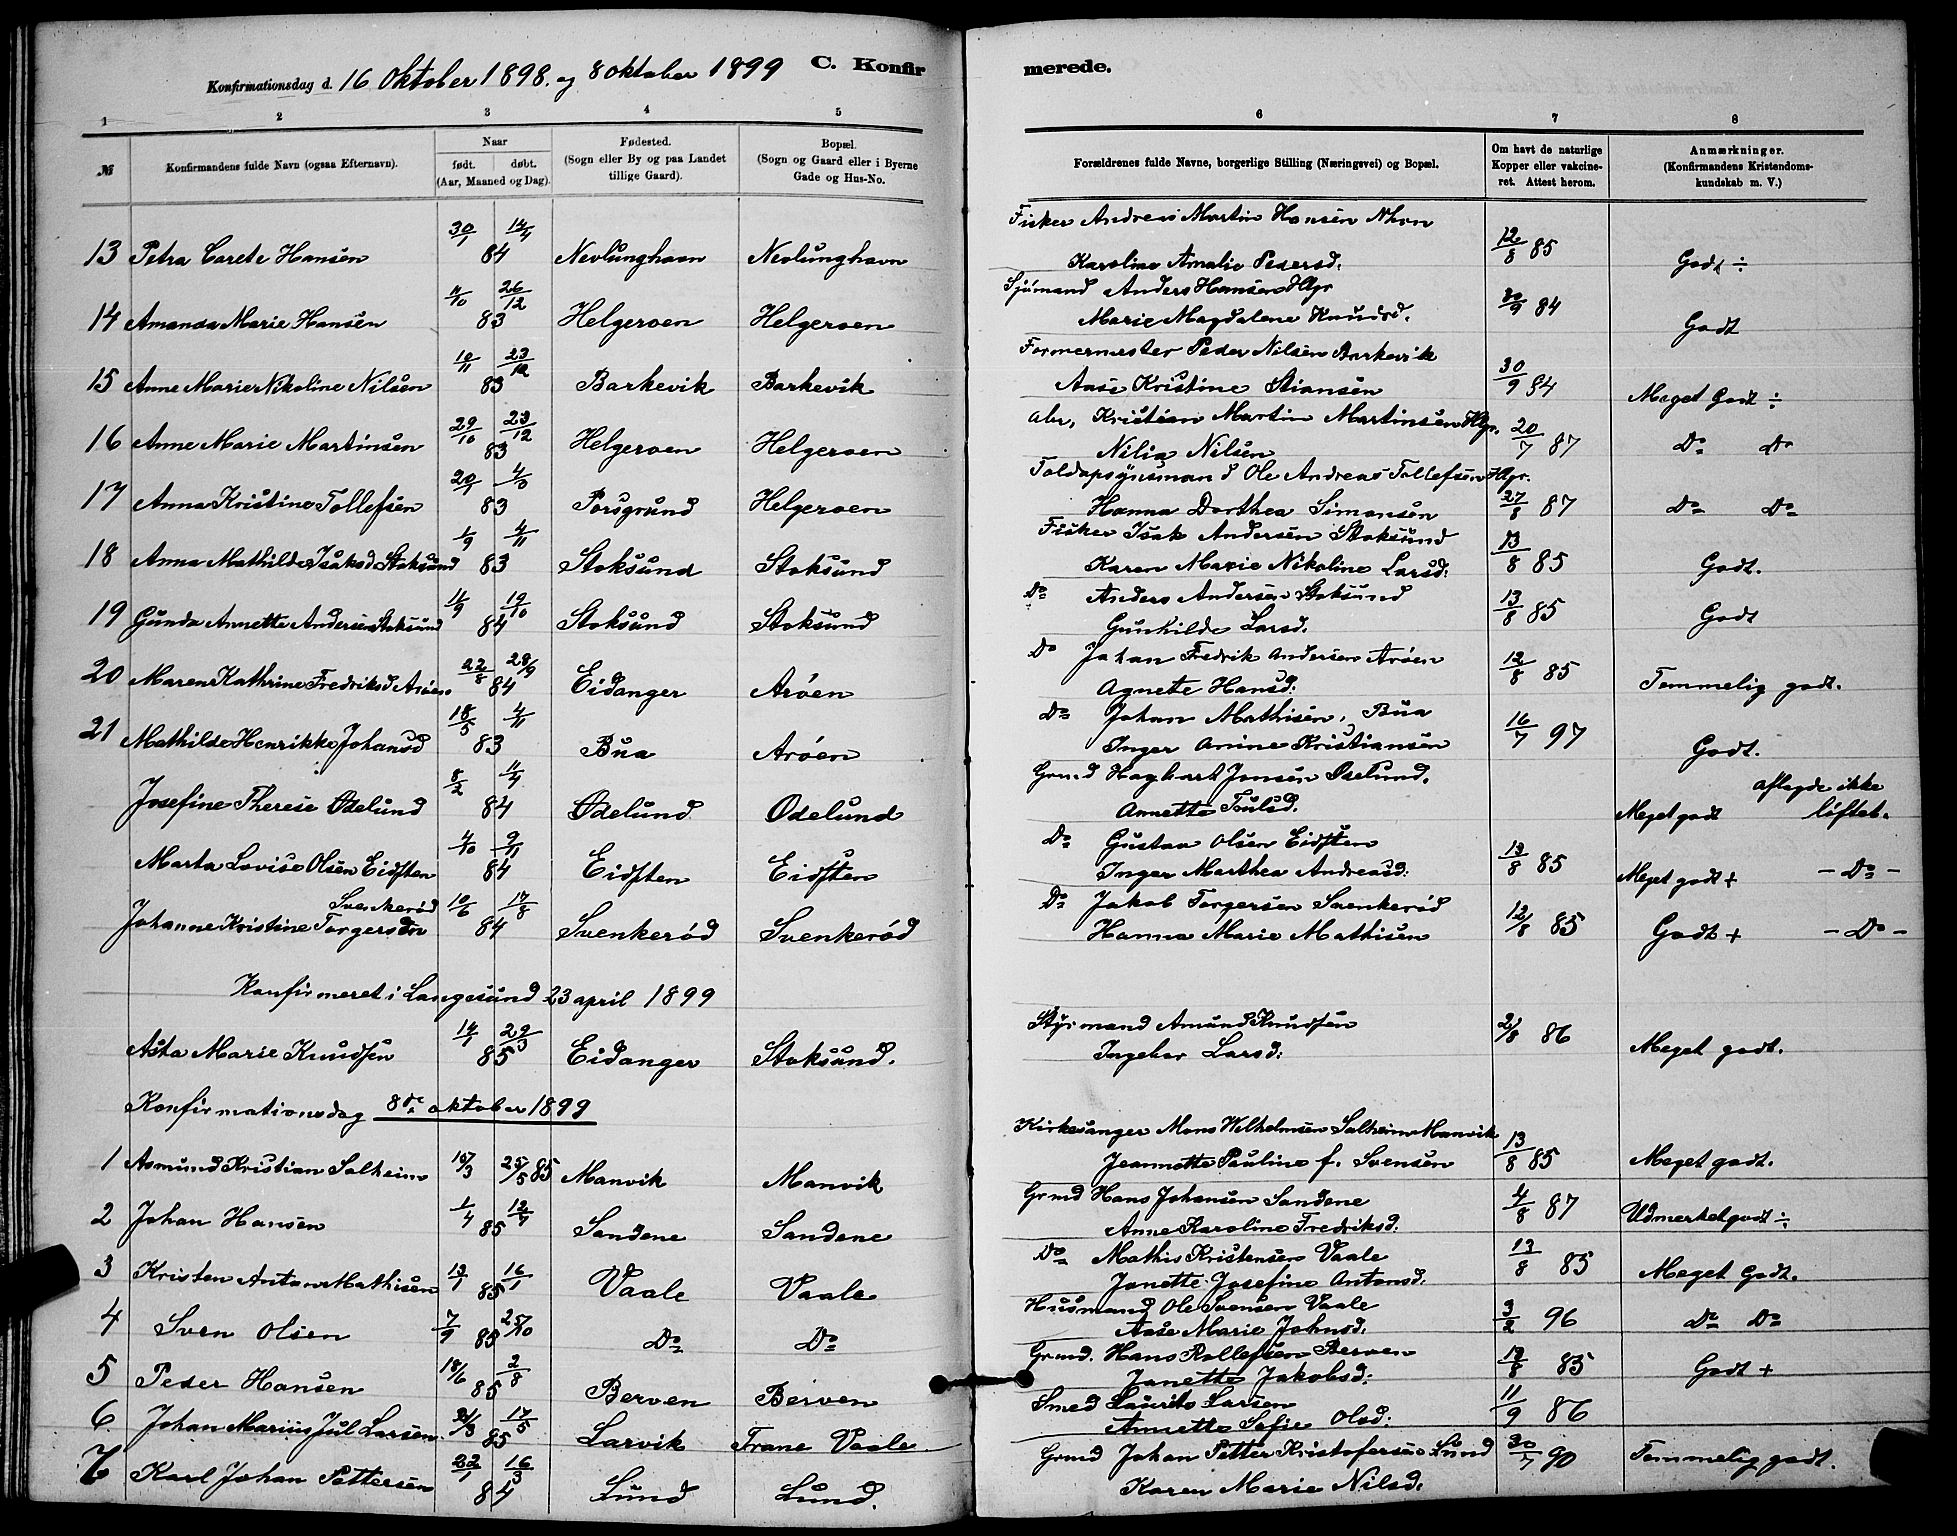 Konfirmationsdag d. 16 Oktober 1898. og 8 oktober 1899 C. Konfirmerede.
1 2 3 4 5 6 7 8
№
Konfirmandens fulde Navn (ogsaa Efternavn).
Naar
født. døbt.
(Aar, Maaned og Dag).
Fødested.
(Sogn eller By og paa Landet
tillige Gaard).
Bopæl.
(Sogn og Gaard eller i Byerne
Gade og Hus-No.
Forældrenes fulde Navne, borgerlige Stilling (Næringsvei) og Bopæl.
Om havt de naturlige
Kopper eller vakcine-
ret. Attest herom.
Anmærkninger.
(Konfirmandens Kristendoms-
kundskab m. V.)
Fisker Andreas Martin Hansen Nhvn
13 Petra Carete Hansen 30/1 14/4 84 Nevlunghavn Nevlunghavn Karoline Amalie Pedersd. 12/8 85 Godt ÷
Sjømand Anders Hansen Hlgr
14 Amanda Marie Hansen 4/10 26/12 83 Helgeroen Helgeroen Marie Magdalene Knudsd. 30/9 84 Godt
Formermester Peder Nilsen Barkevik
15 Anne Marie Nikoline Nilsen 10/11 23/12 83 Barkevik Barkevik Aase Kristine Stiansen 30/9 84 Meget Godt ÷
Kristian Martin Martinsen Hlgr.
16 Anne Marie Martinsen 29/10 23/12 83 Helgeroen Helgeroen Nilia Nilsen 20/7 87 Do Do
Toldopsynsmand Ole Andreas Tollefsen Hlgr.
17 Anna Kristine Tollefsen 20/1 83 Porsgrund Helgeroen Hanna Dorthea Simonsen 27/8 87 Do Do
Fisker Isak Andersen Stoksund
18 Anna Mathilde Isaksd Stoksund 1/9 4/11 83 Stoksund Stoksund Karen Marie Nikoline Larsd: 13/8 85 Godt.
Do Anders Andersen Stoksund
19 Gunda Annette Andersen Stoksund 11/9 19/10 84 Stoksund Stoksund Gunhilde Larsd. 13/8 85 Godt
Do Johan Fredrik Andersen Arøen
20 Maren Kathrine Fredriksd Arøen 22/8 28/9 84 Eidanger Arøen Agnete Hansd: 12/8 85 Temmelig godt.
Do Johan Mathisen, Bua
21 Mathilde Henrikke Johansd 18/5 4/11 83 Bua Arøen Inger Amine Kristiansen 16/7 97 Godt.
Grmd Haghart Jensen Ødelund.
Josefine Therese Ødelund 8/2 11/4 84 Ødelund Odelund Annette Toulsd. Meget godt aflagde ikke løftet.
Do Gustav Olsen Eidsten
Marta Lovise Olsen Eidsten 4/10 9/11 84 Eidsten Eidsten Inger Marthea Andreasd: 13/8 85 Meget godt + - Do -
Do Jakob Torgersen Svenkerød
Johanne Kristine Torgersen Svenkerød 10/6 17/8 84 Svenkerød Svenkerød Hanna Marie Mathisen 12/8 85 Godt + - Do -
Konfirmeret i Langesund 23 april 1899
Styrmand Amund Knudsen
Asta Marie Knudsen 14/1 29/3 85 Eidanger Stoksund. Ingebor Larsd: 2/8 86 Meget godt.
Konfirmationsdag 8de oktober 1899
Kirkesanger Mons Wilhelmsen Solheim Manvik
1 Asmund Kristian Solheim 25/5 85 Manvik Manvik Jeannette Pauline f. Svensen 13/8 85 Meget godt.
Grmd Hans Johansen Sandene
2 Johan Hansen 1/4 12/7 85 Sandene Sandene Anne Karoline Fredriksd. 4/8 87 Udmerket godt ÷
Do Mathis Kristensen Vaale
3 Kristen Anton Mathisen 13/1 16/1 85 Vaale Vaale Janette Josefine Antonsd. 13/8 85 Meget Godt.
Husmand Ole Svensen Vaale
4 Sven Olsen 7/9 25/10 85 Do Do Aase Marie Johnsd. 3/2 96 Do Do
Grmd. Hans Rollefsen Berven
5 Peder Hansen 18/6 2/8 85 Berven Berven Janette Jakobsd: 13/8 85 Godt +
Smed Laurits Larsen
6. Johan Marius Jul Larsen 21/3 17/5 85 Larvik Trane Vaale Annette Sofie Olsd: 11/9 86
Grmd Johan Petter Kristofersen Lund
7 Karl Johan Pettersen 22/1 16/3 84 Lund Lund. Karen Marie Nilsd. 30/7 90 Temmelig godt.